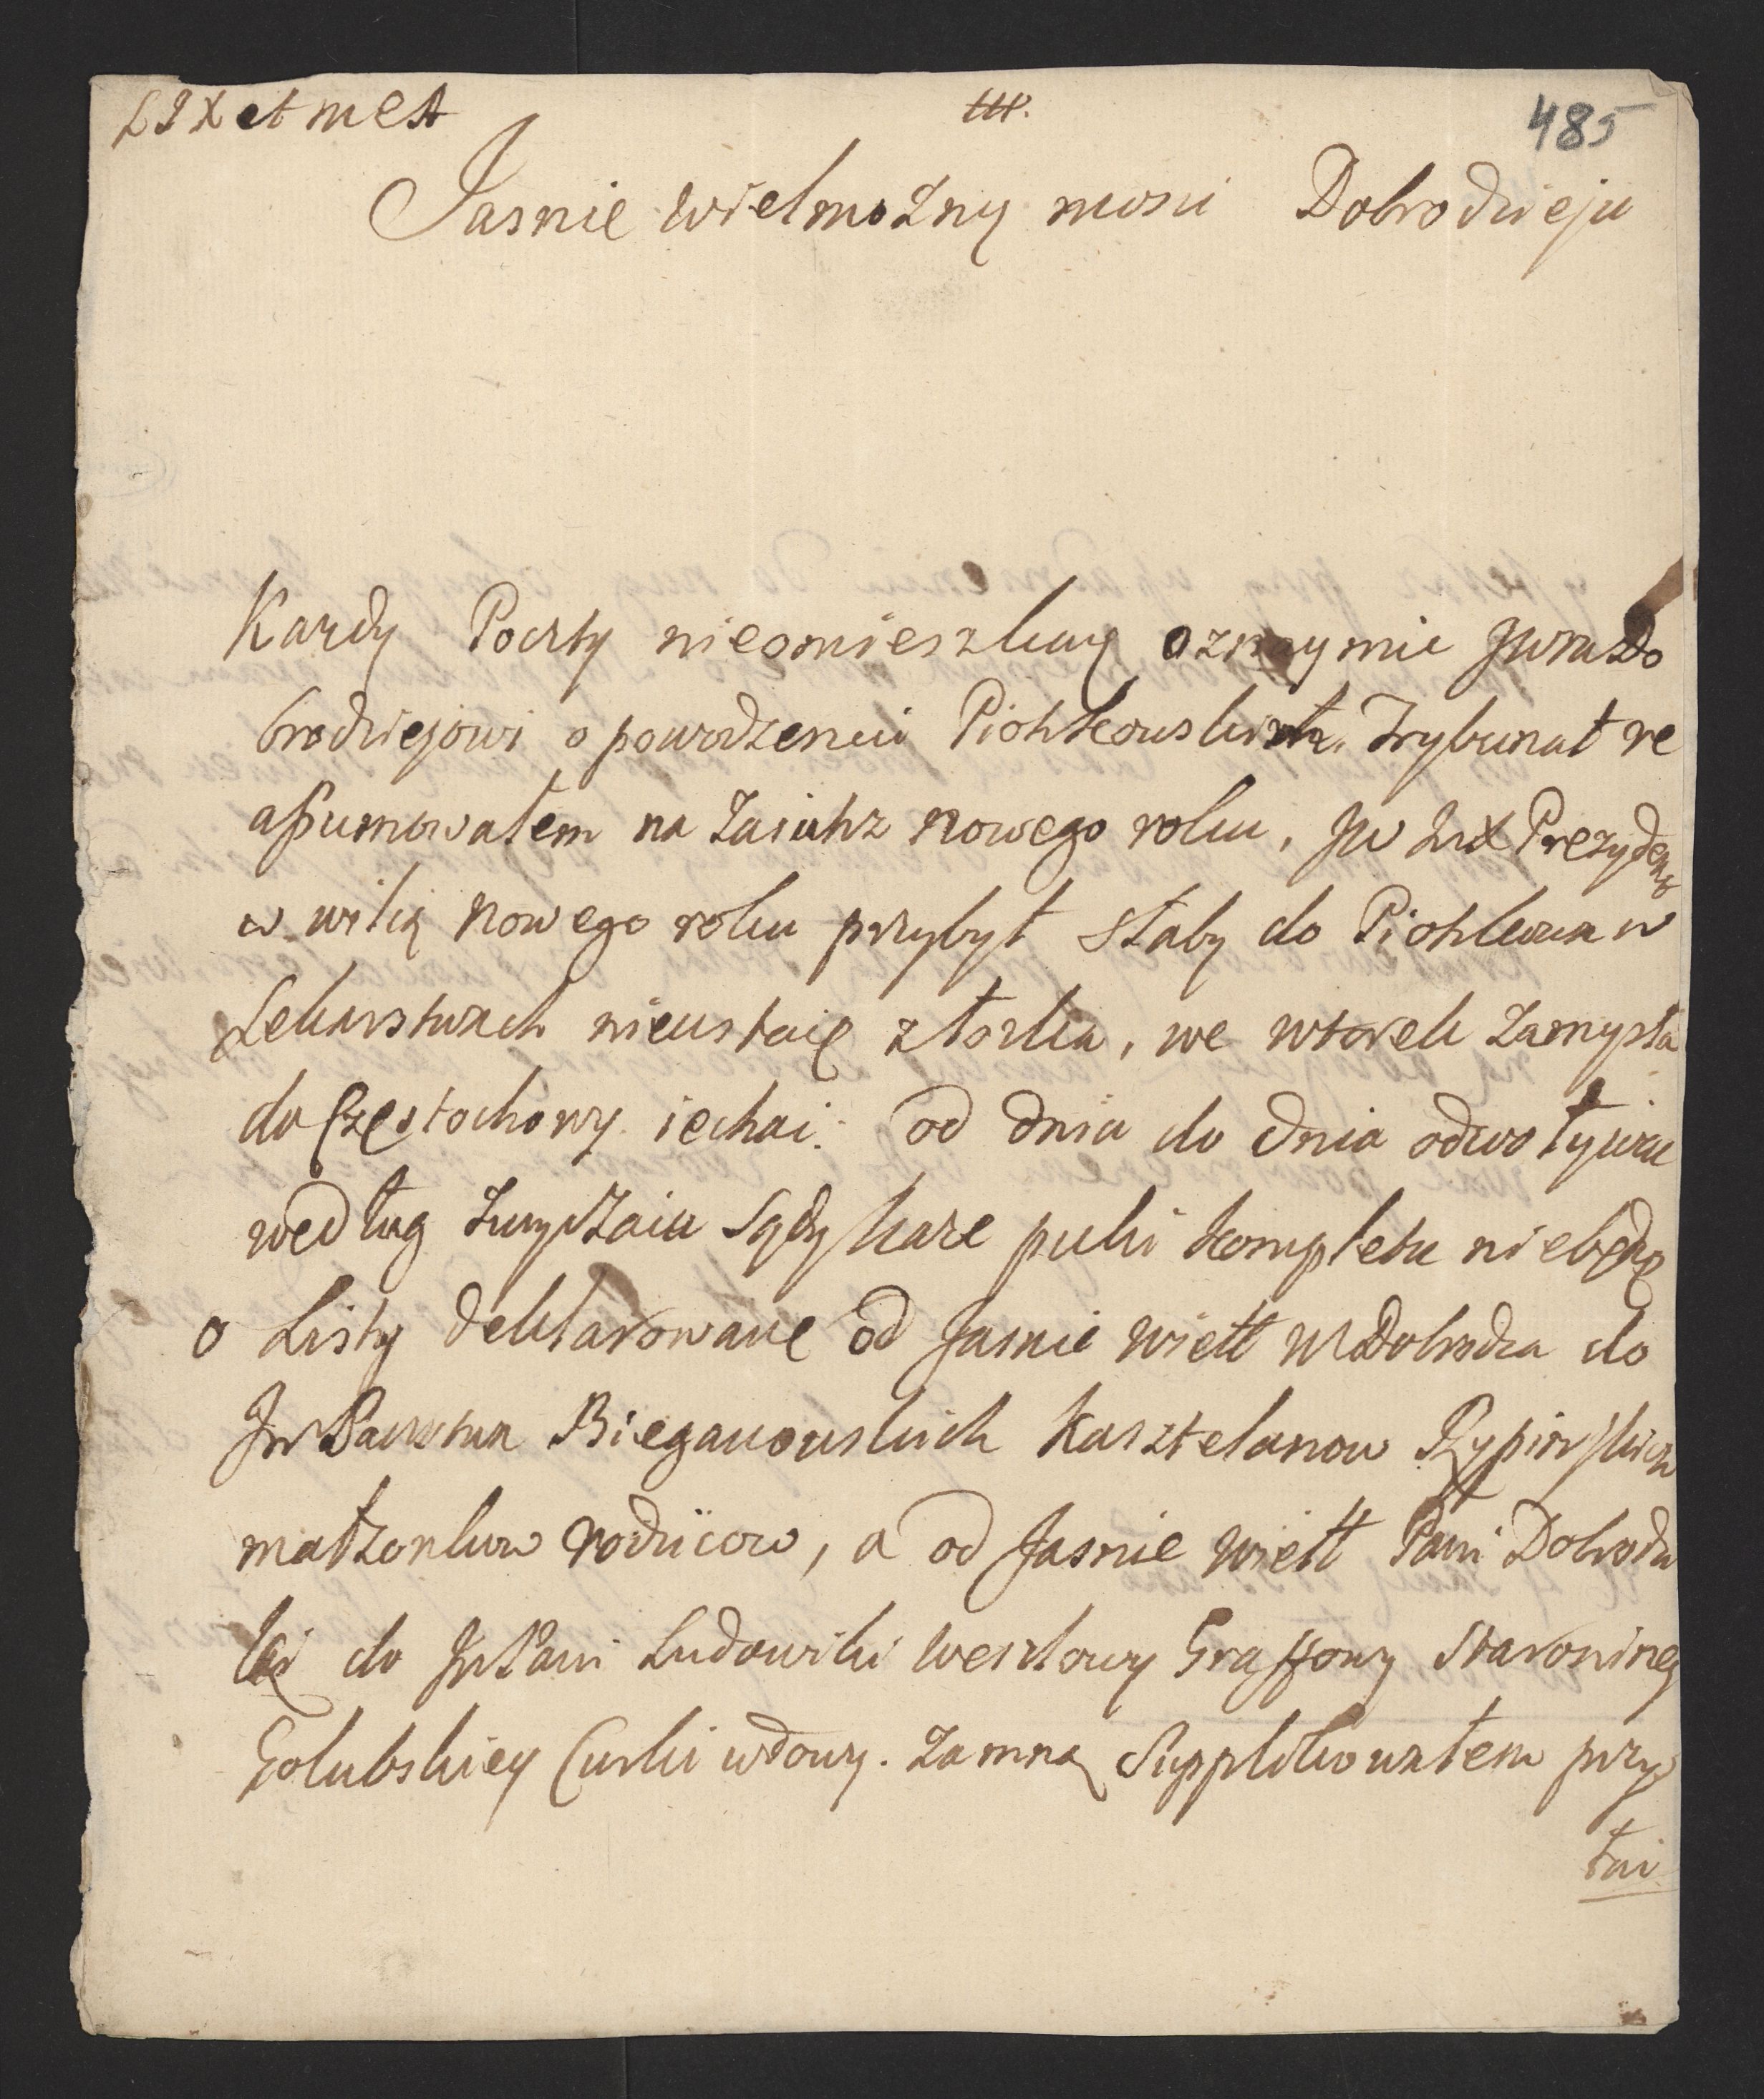 LJX et MCA
ttt.
485
Jasnie Wielmozny mosci Dobrodzieju
Kazdy Poczty nieomieszkuię oznaymic JwmDo
brodziejowi o powodzeniu Piotrkowskich. Trybunał re
assumowałem na Zaiutrz Nowego roku, Jw Prezydent
w wilią Nowego roku przybył słaby do Piotrkowa w
Lekarstwach nieustaię z łozka, we wtorek zamysla
do Częstochowy iechac: od dnia do dnia odwoływac
według zwyczaiu Sądy karze puki kompletu niebędzie
o Listy deklarowane od Jasnie Wiell WDobrodza do
JwPanstwa Bieganowskich Kasztelanow Rypinskich
małzonkow rodzicow, a od Jasnie Wiell Pani Dobrodzi
ki do JwPani Ludowiki Graffowy Staroscinej
Golubskiey Curki wdowy. Zamną Supplikowałem przy
łai